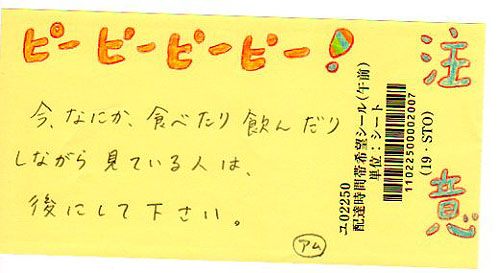 ピービーピーピー!
注意
今、なにか、食べたり飲んだり
しながら見ている人は、
後にして下さい。
アム
ユ02250
配達時間帯希望シール(午前)
単位:シート
11022500002007
(19・STO)